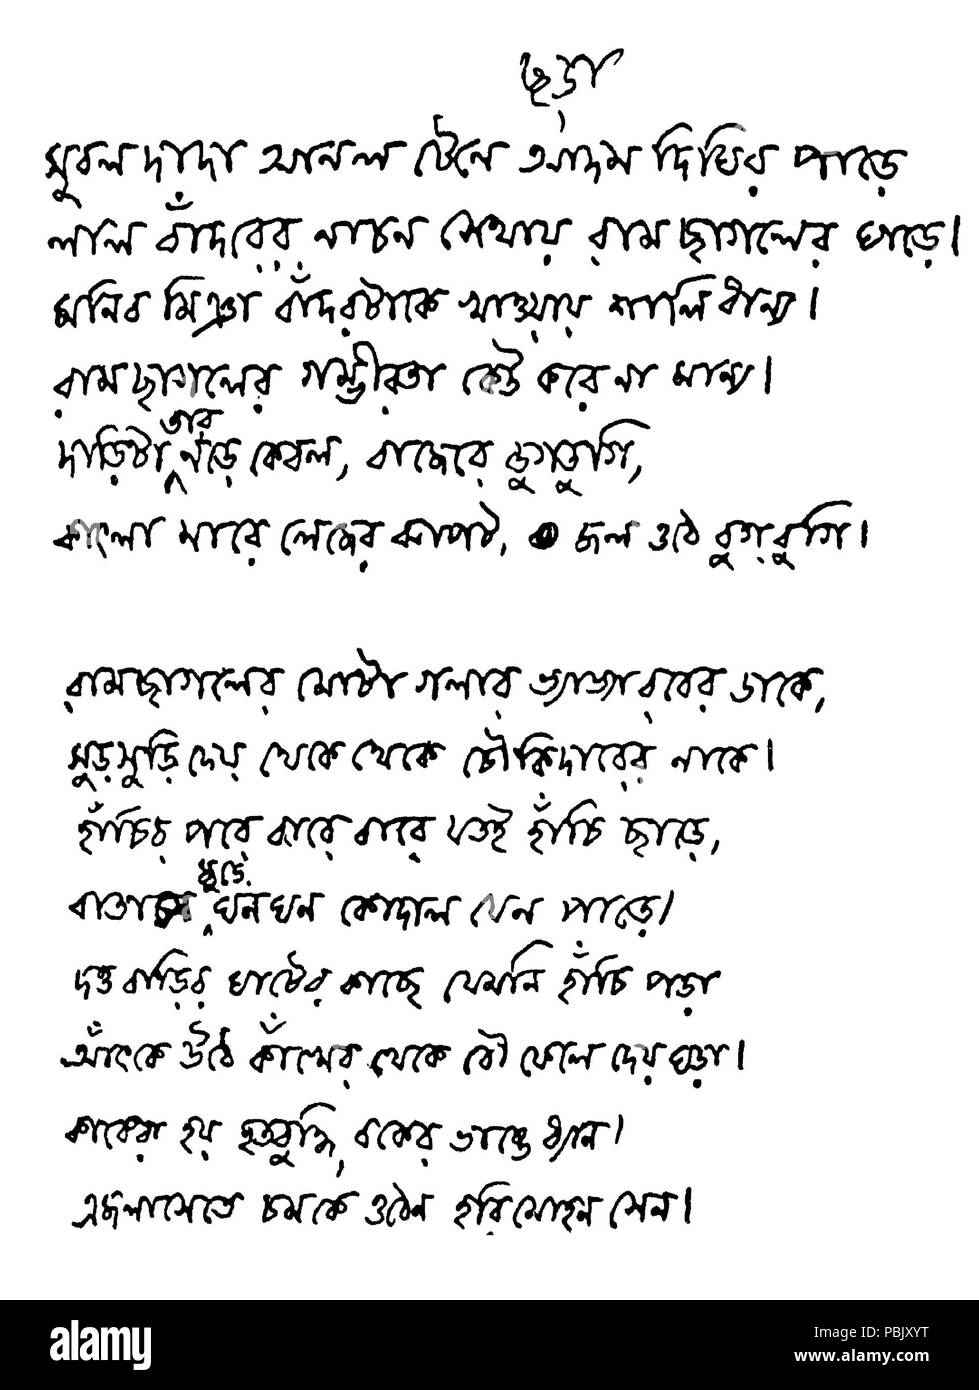 ছড়া
সুবলদাদা আনল টেনে আদম দিঘির পাড়ে
লাল বাঁদরের নাচন সেথায় রামছাগলের ঘাড়ে।
মনিব মিঞা বাঁদরটাকে খাওয়ায় শালিধান্য।
রামছাগলের গম্ভীরতা কেউ করে না মান্য।
দাড়িটা তার নড়ে কেবল, বাজেরে ডুগডুগি,
কাৎলা মারে লেজের ঝাপট, জল ওঠে বুগ্‌বুগি।
রামছাগলের মোটা গলার ভ্যাভ্যারবের ডাকে,
সুড়সুড়ি দেয় থেকে থেকে চৌকিদারের নাকে।
হাঁচির পরে বারে বারে যতই হাঁচি ছাড়ে,
বাতাসে ঘন ঘন কোদাল যেন পাড়ে।
দত্তবাড়ির ঘাটের কাছে যেমনি হাঁচি পড়া
আঁৎকে উঠে কাঁখের থেকে বৌ ফেলে দেয় ঘড়া।
কাকেরা হয় হতবুদ্ধি, বকের ভাঙে ধ্যান।
এজলাসেতে চমকে ওঠেন হরিমোহন সেন।
alamy
Image ID: PBJXYT
www.alamy.com